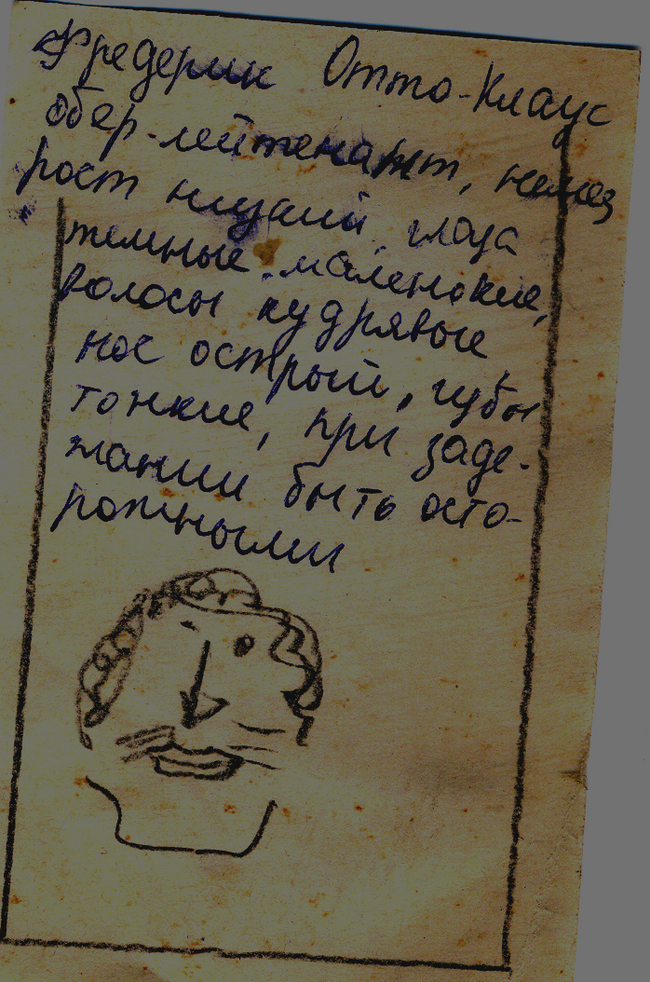 Фредерик Отто-Клаус
обер-лейтенант, немец
рост низший, глаза
темные маленькие,
волосы кудрявые
нос острый, губы
тонкие, при заде-
жании быть осто-
рожными